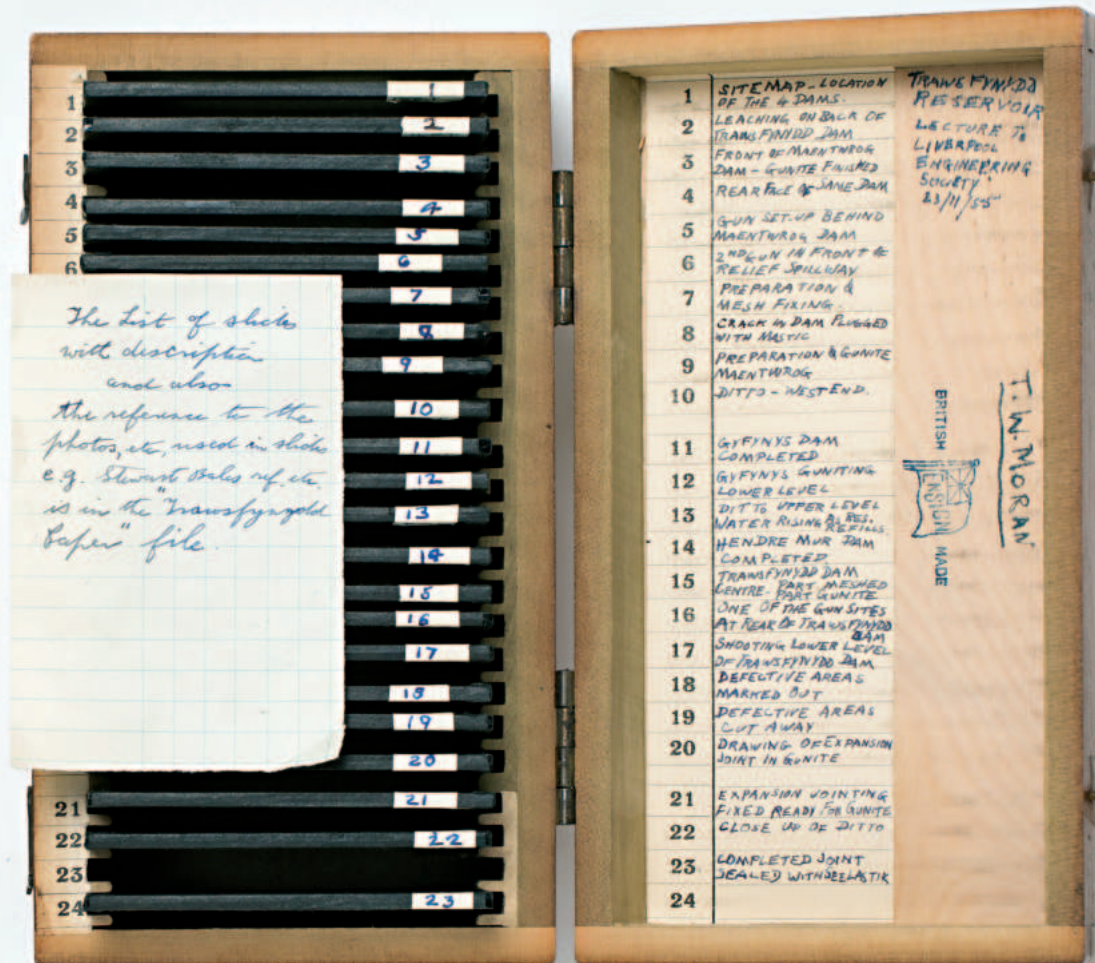 1
2
3
4
5
6
21
22
23
24
1
2
3
4
5
6
7
8
9
10
11
12
13
14
15
16
17
18
19
20
21
22
23
The List of slides
with description
and also
the reference to the
photos, etc, used in slides
e.g. Stewart Bales ref. etc.
is in the "Trawsfyngold
Paper" file.
1 SITE MAP - LOCATION
OF THE 4 DAMS.
2 LEACHING ON BACK OF
TRAWSFYNYDD DAM
3 FRONT OF MAENTWROG
DAM - GUNITE FINISHED
4 REAR FACE OF SAME DAM
5 GUN SET-UP BEHIND
MAENTWROG DAM
6 2ND GUN IN FRONT OF
RELIEF SPILLWAY
7 PREPARATION &
MESH FIXING.
8 CRACK IN DAM PLUGGED
WITH MASTIC
9 PREPARATION & GUNITE
MAENTWROG
10 DITTO - WEST END.
11 GYFYNYS DAM
COMPLETED
12 GYFYNYS GUNITING
LOWER LEVEL
13 DITTO UPPER LEVEL
WATER RISING AS RES.
REFILLS
14 HENDRE MUR DAM
COMPLETED
15 TRAWSFYNYDD DAM
CENTRE - PART MESHED
PART GUNITE
16 ONE OF THE GUN SITES
AT REAR OF TRAWSFYNYDD
DAM
17 SHOOTING LOWER LEVEL
OF TRAWSFYNYDD DAM
18 DEFECTIVE AREAS
MARKED OUT
19 DEFECTIVE AREAS
CUT AWAY
20 DRAWING OF EXPANSION
JOINT IN GUNITE
21 EXPANSION JOINTING
FIXED READY FOR GUNITE
22 CLOSE UP OF DITTO
23 COMPLETED JOINT
SEALED WITH SEELASTIK
24
TRAWSFYNYDD
RESERVOIR
LECTURE TO
LIVERPOOL
ENGINEERING
SOCIETY.
23/11/55
T. W. MORAN
BRITISH
ENSIGN
MADE